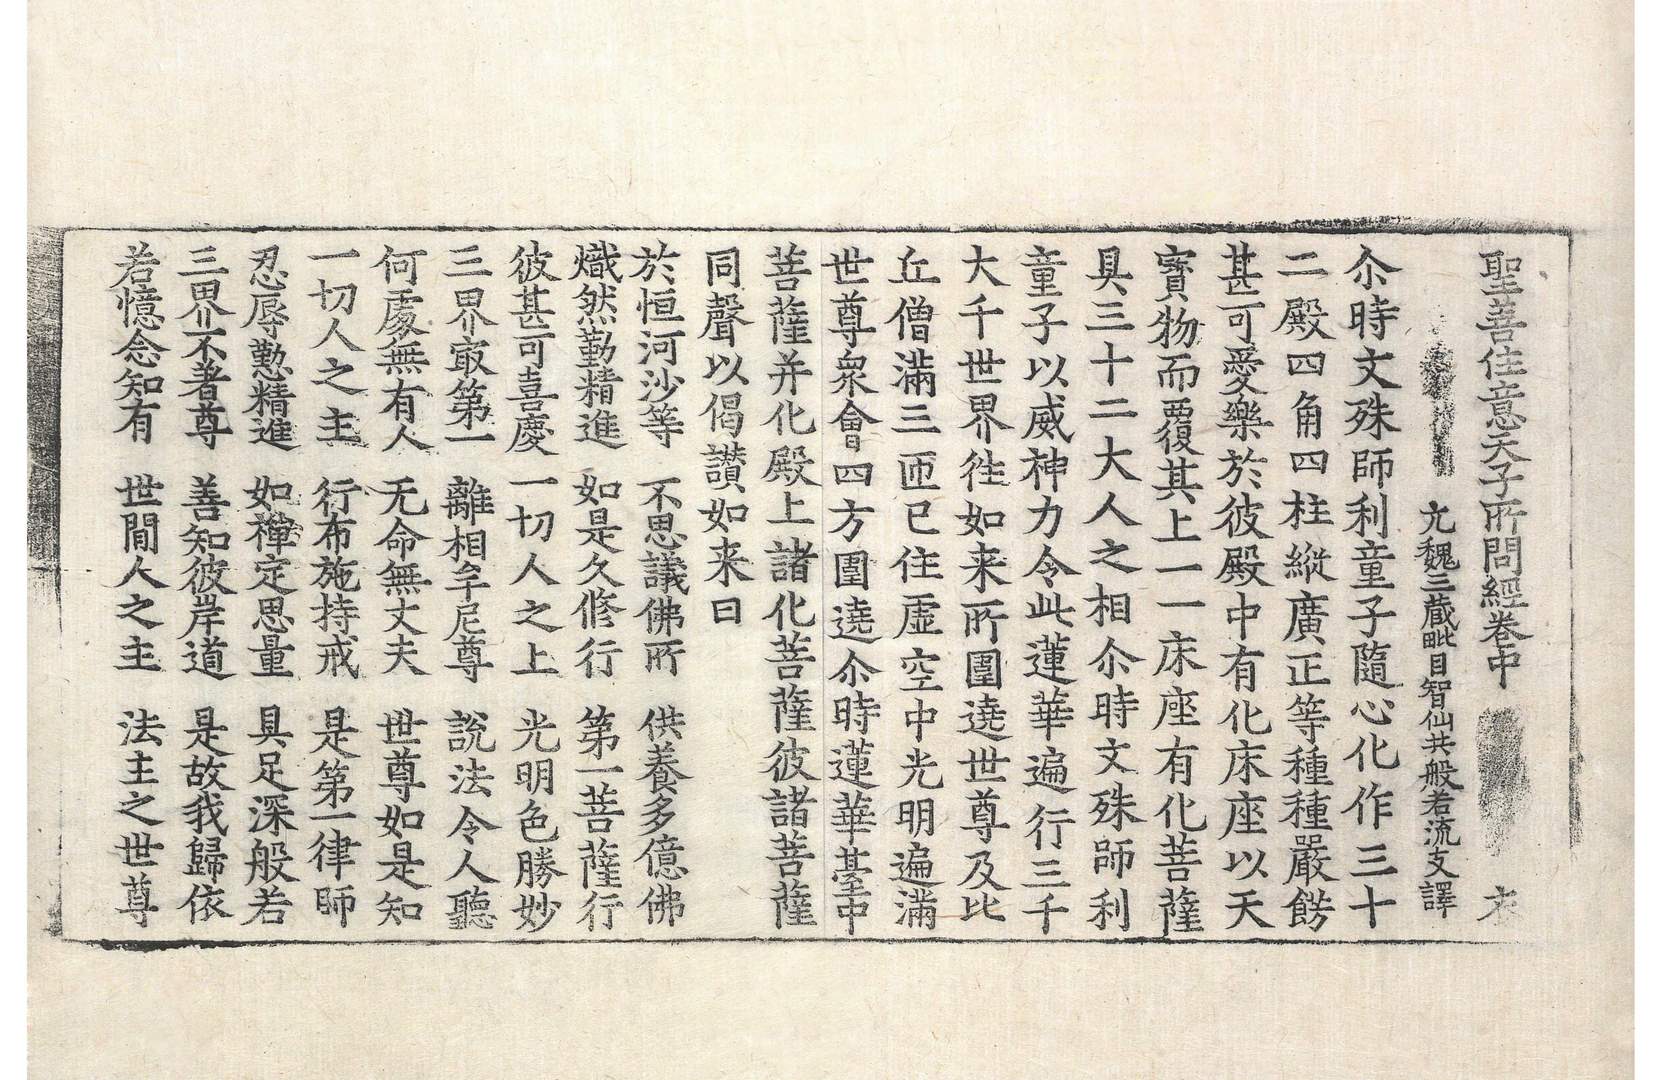 聖善住意天子所問經卷中
元魏三藏毗目智仙共般若流支譯
尒時文殊師利童子隨心化作三十
二殿四角四柱縱廣正等種種嚴餝
甚可愛樂於彼殿中有化床座以天
寶物而覆其上一一床座有化菩薩
具三十二大人之相尒時文殊師利
童子以威神力令此蓮華遍行三千
大千世界徃如来所圍遶世尊及比
丘僧滿三匝已住虛空中光明遍滿
世尊衆會四方圍遶尒時蓮華臺中
菩薩并化殿上諸化菩薩彼諸菩薩
同聲以偈讃如来曰
於恒河沙等　不思議佛所　供養多億佛
熾然勤精進　如是久修行　第一菩薩行
彼甚可喜慶　一切人之上　光明色勝妙
三界㝡第一　離相牟尼尊　說法令人聽
何處無有人　无命無丈夫　世尊如是知
一切人之主　行布施持戒　是第一律師
忍辱懃精進　如禪定思量　具足深般若
三界不著尊　善知彼岸道　是故我歸依
若憶念知有　世間人之主　法主之世尊